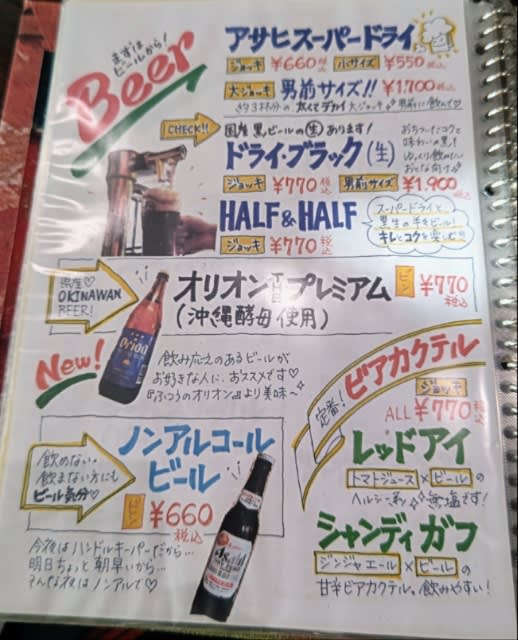 まずは
ビールから!
Beer
アサヒスーパードライ
ジョッキ ¥660税込 小サイズ ¥550税込
大ジョッキ 男前サイズ!! ¥1,700税込
約3杯分の 太くてデカイ 大ジョッキ 男前に飲んで♡
CHECK!! 国産黒ビールの生あります!
ドライ・ブラック(生)
ジョッキ ¥770税込 男前サイズ ¥1,900税込
おちついたコクと
味わいの黒!
ゆっくり飲みたい
おとな向け
HALF & HALF
ジョッキ ¥770税込
スーパードライと
黒生の半々ビール!
キレとコクを楽しむ!!!
県産♡
OKINAWAN
BEER!
オリオン プレミアム
(沖縄酵母使用)
ビン ¥770税込
Orion
New!
飲み応えのあるビールが
お好きな人に、おススメです♡
『ふつうのオリオン』より美味〜
定番!
ビアカクテル
ジョッキ
ALL ¥770税込
レッドアイ
トマトジュース×ビールの
ヘルシー系 無塩です!
シャンディガフ
ジンジャエール×ビールの
甘辛ビアカクテル。飲みやすい!
飲めない。
飲まない方にも
ビール気分♡
ノンアルコール
ビール
ビン ¥660
税込
今夜はハンドルキーパーだから…
明日ちょっと朝早いから…
そんな夜はノンアルで♡